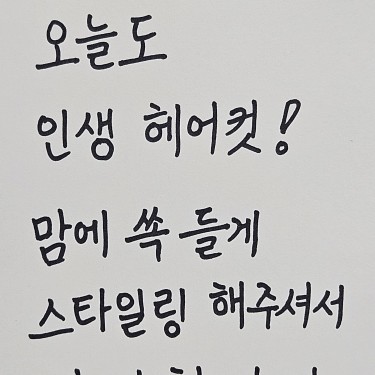 오늘도
인생 헤어컷!
맘에 쏙 들게
스타일링 해주셔서